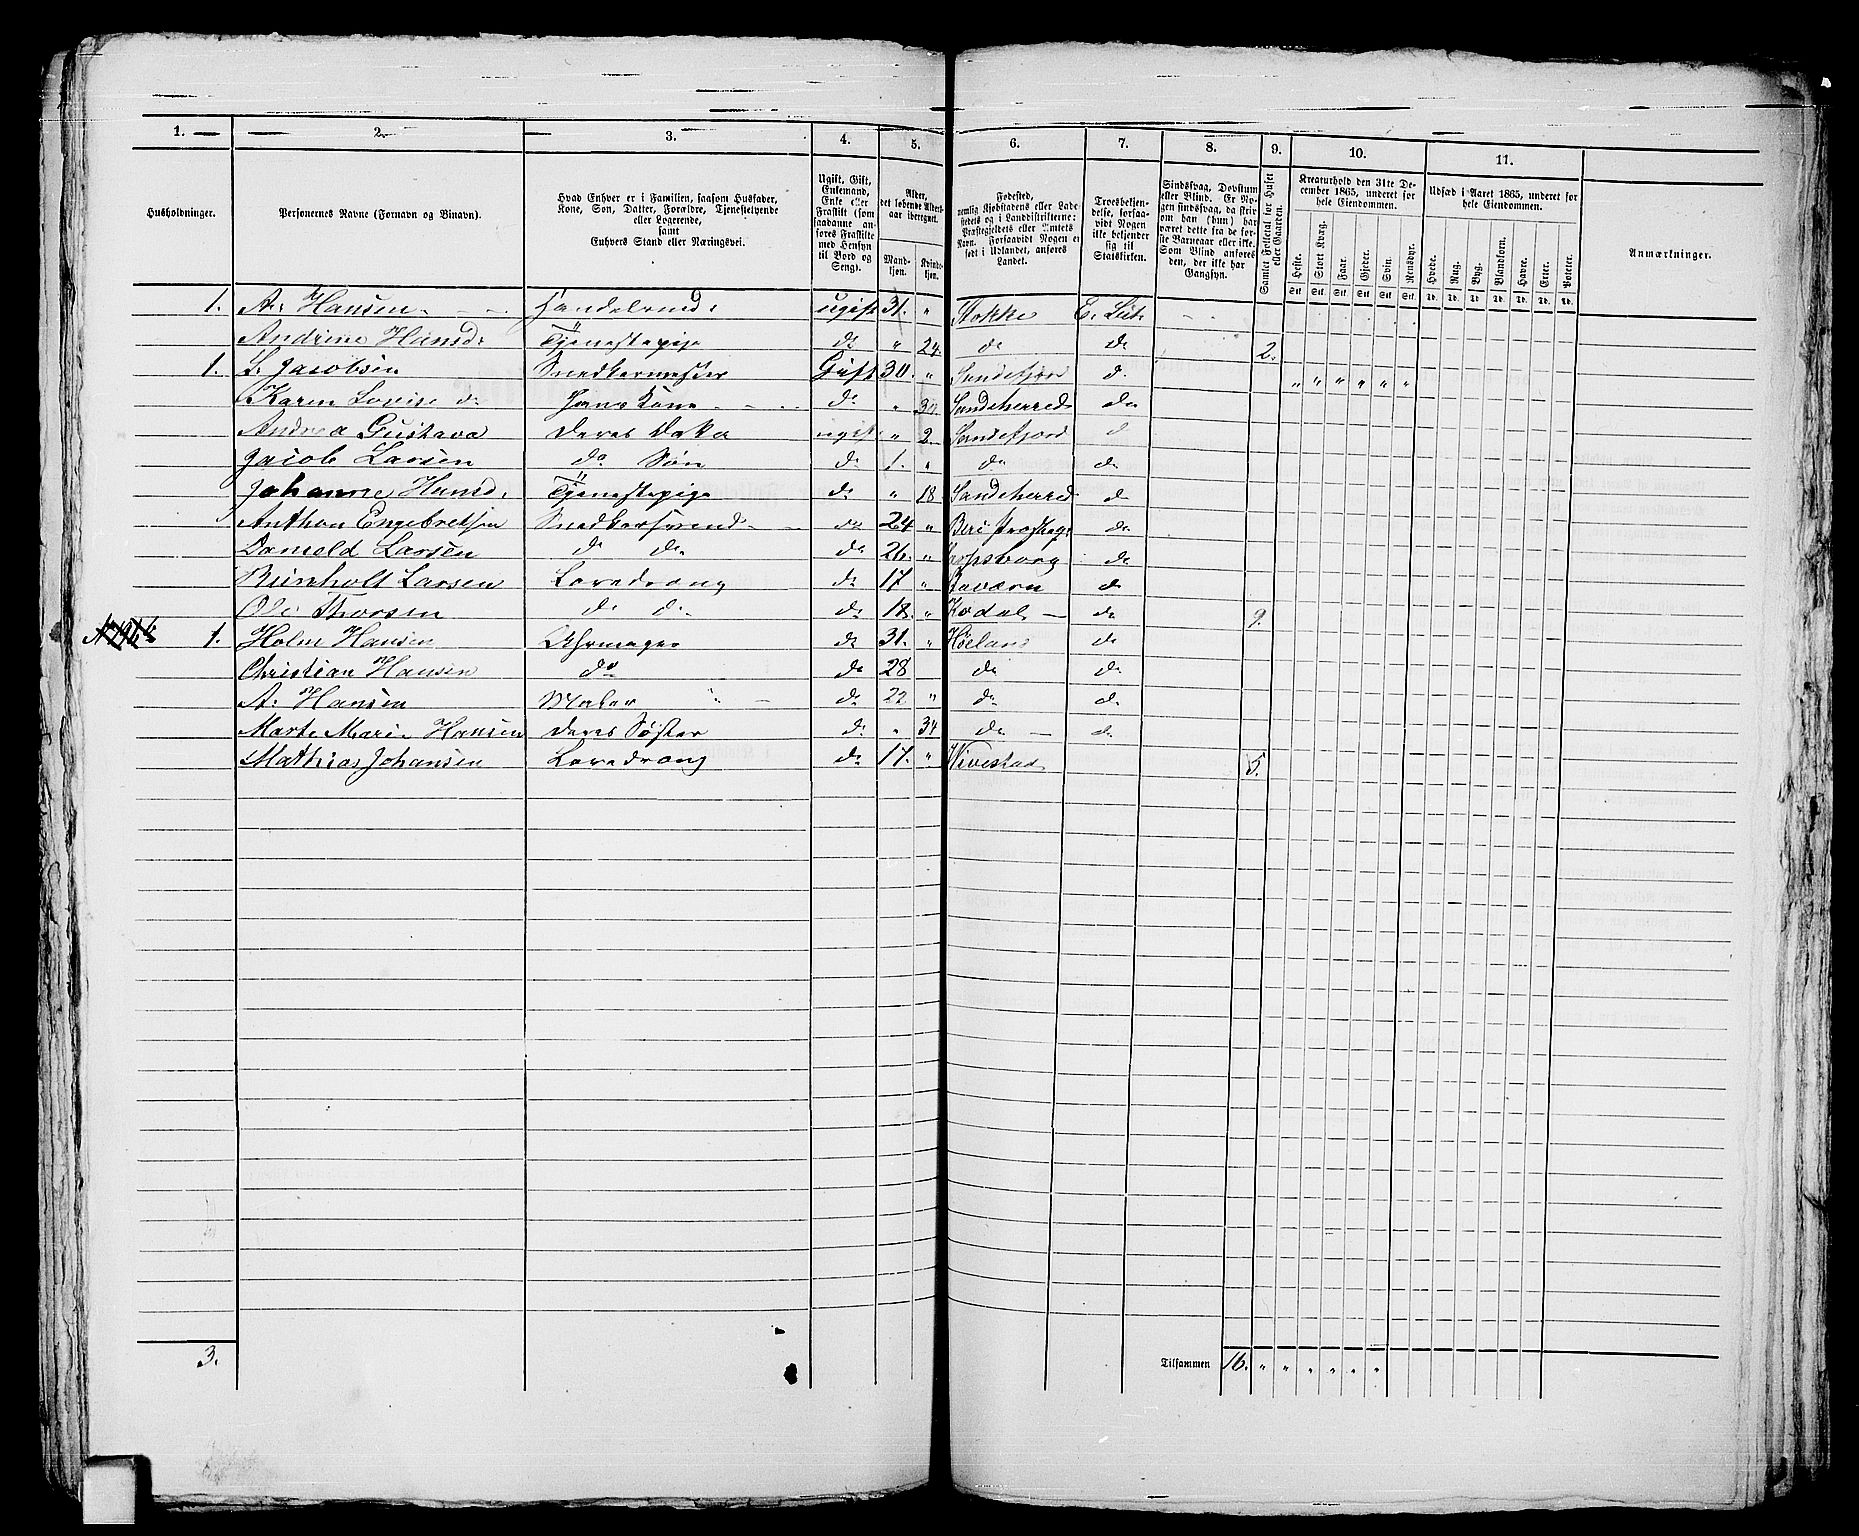 1. 2. 3. 4. 5. 6. 7. 8. 9. 10. 11.
Husholdninger.
Personernes Navne (Fornavn og Binavn).
Hvad Enhver er i Familien, saasom Husfader,
Kone, Søn, Datter, Forældre, Tjenestetyende
eller Logerende,
samt
Enhvers Stand eller Næringsvei.
Ugift, Gift,
Enkemand,
Enke eller
Fraskilt (som
saadanne an-
føres Fraskilte
med Hensyn
til Bord og
Seng).
Alder,
det løbende Alders-
aar iberegnet.
Mand-
kjøn.
Kvinde-
kjøn.
Fødested,
nemlig Kjøbstadens eller Lade-
stedets og i Landdistrikterne:
Præstegjeldets eller Amtets
Navn. Forsaavidt Nogen er
født i Udlandet, anføres
Landet.
Troesbekjen-
delse, forsaa-
vidt Nogen
ikke bekjender
sig til
Statskirken.
Sindssvag, Døvstum
eller Blind. Er No-
gen sindssvag, da skriv
om han (hun) har
været dette fra de før-
ste Barneaar eller ikke.
Som Blind anføres
den, der ikke har
Gangsyn.
Samlet Folketal for Huset
eller Gaarden.
Kreaturhold den 31te De-
cember 1865, underet for
hele Eiendommen.
Heste. Stort Kvæg. Faar. Gjeder. Svin. Rensdyr.
Stk. Stk. Stk. Stk. Stk. Stk.
Udsæd i Aaret 1865, underet for
hele Eiendommen.
Hvede. Rug. Byg. Blandkorn. Havre. Erter. Poteter.
Td. Td. Td. Td. Td. Td. Td.
Anmærkninger.
1. A. Hansen Handelsmd. ugift 31. " Stokke E. Luth.
Andrine Hansd. Tjenestepige do " 24. do do 2.
1. L. Jacobsen Snedkermester Gift 30. " Sandefjord d. " " " " " "
Karen Lovise do Hans Kone do " 30. Sandeherred do
Andrea Gustava Deres Datter ugift " 2 Sandefjord d
Jacob Larsen do Søn do 1. " do do
Johanne Hansd. Tjenestepige do " 18 Sandeherred d
Anthon Engebretsen Snedkersvend do 24 " do
Larsen do do do 26. " do
Larsen Læredreng do 17 " d
Ole Thorsen do do do 18. " Kodal do 9.
1. Holm Hansen Uhrmager do 31. " Høeland do
Christian Hansen do do 28 do do
A. Hansen Maler " do 22 " do d.
Marte Marie Hansen deres Søster do " 34 do d
Mathias Johansen Læredreng do 17. " Hvestad 5.
3. Tilsammen 16. " " " " " "